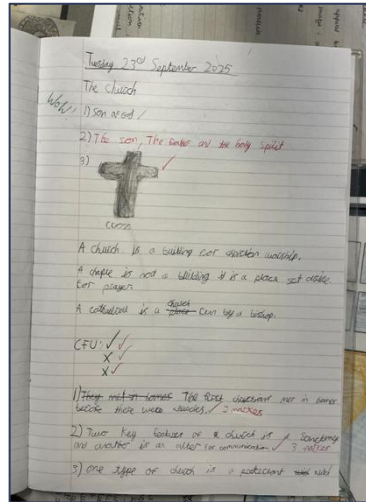 Tuesday 23rd September 2025
The Church
Wow!
1) Son of God
2) The son, The father and the holy spirit
3)
cross
A church is a building for christian worship.
A chaple is not a building it is a place set aside
for prayer.
A cathedral is a church run by a bishop.
CFU: ✓ ✓
X ✓
X ✓
1) They met in homes The first christians met in
before there were churches. 2 marks
2) Two key features of a church is a
and another is an alter for communication. 3 marks
3) One type of church is a protestant